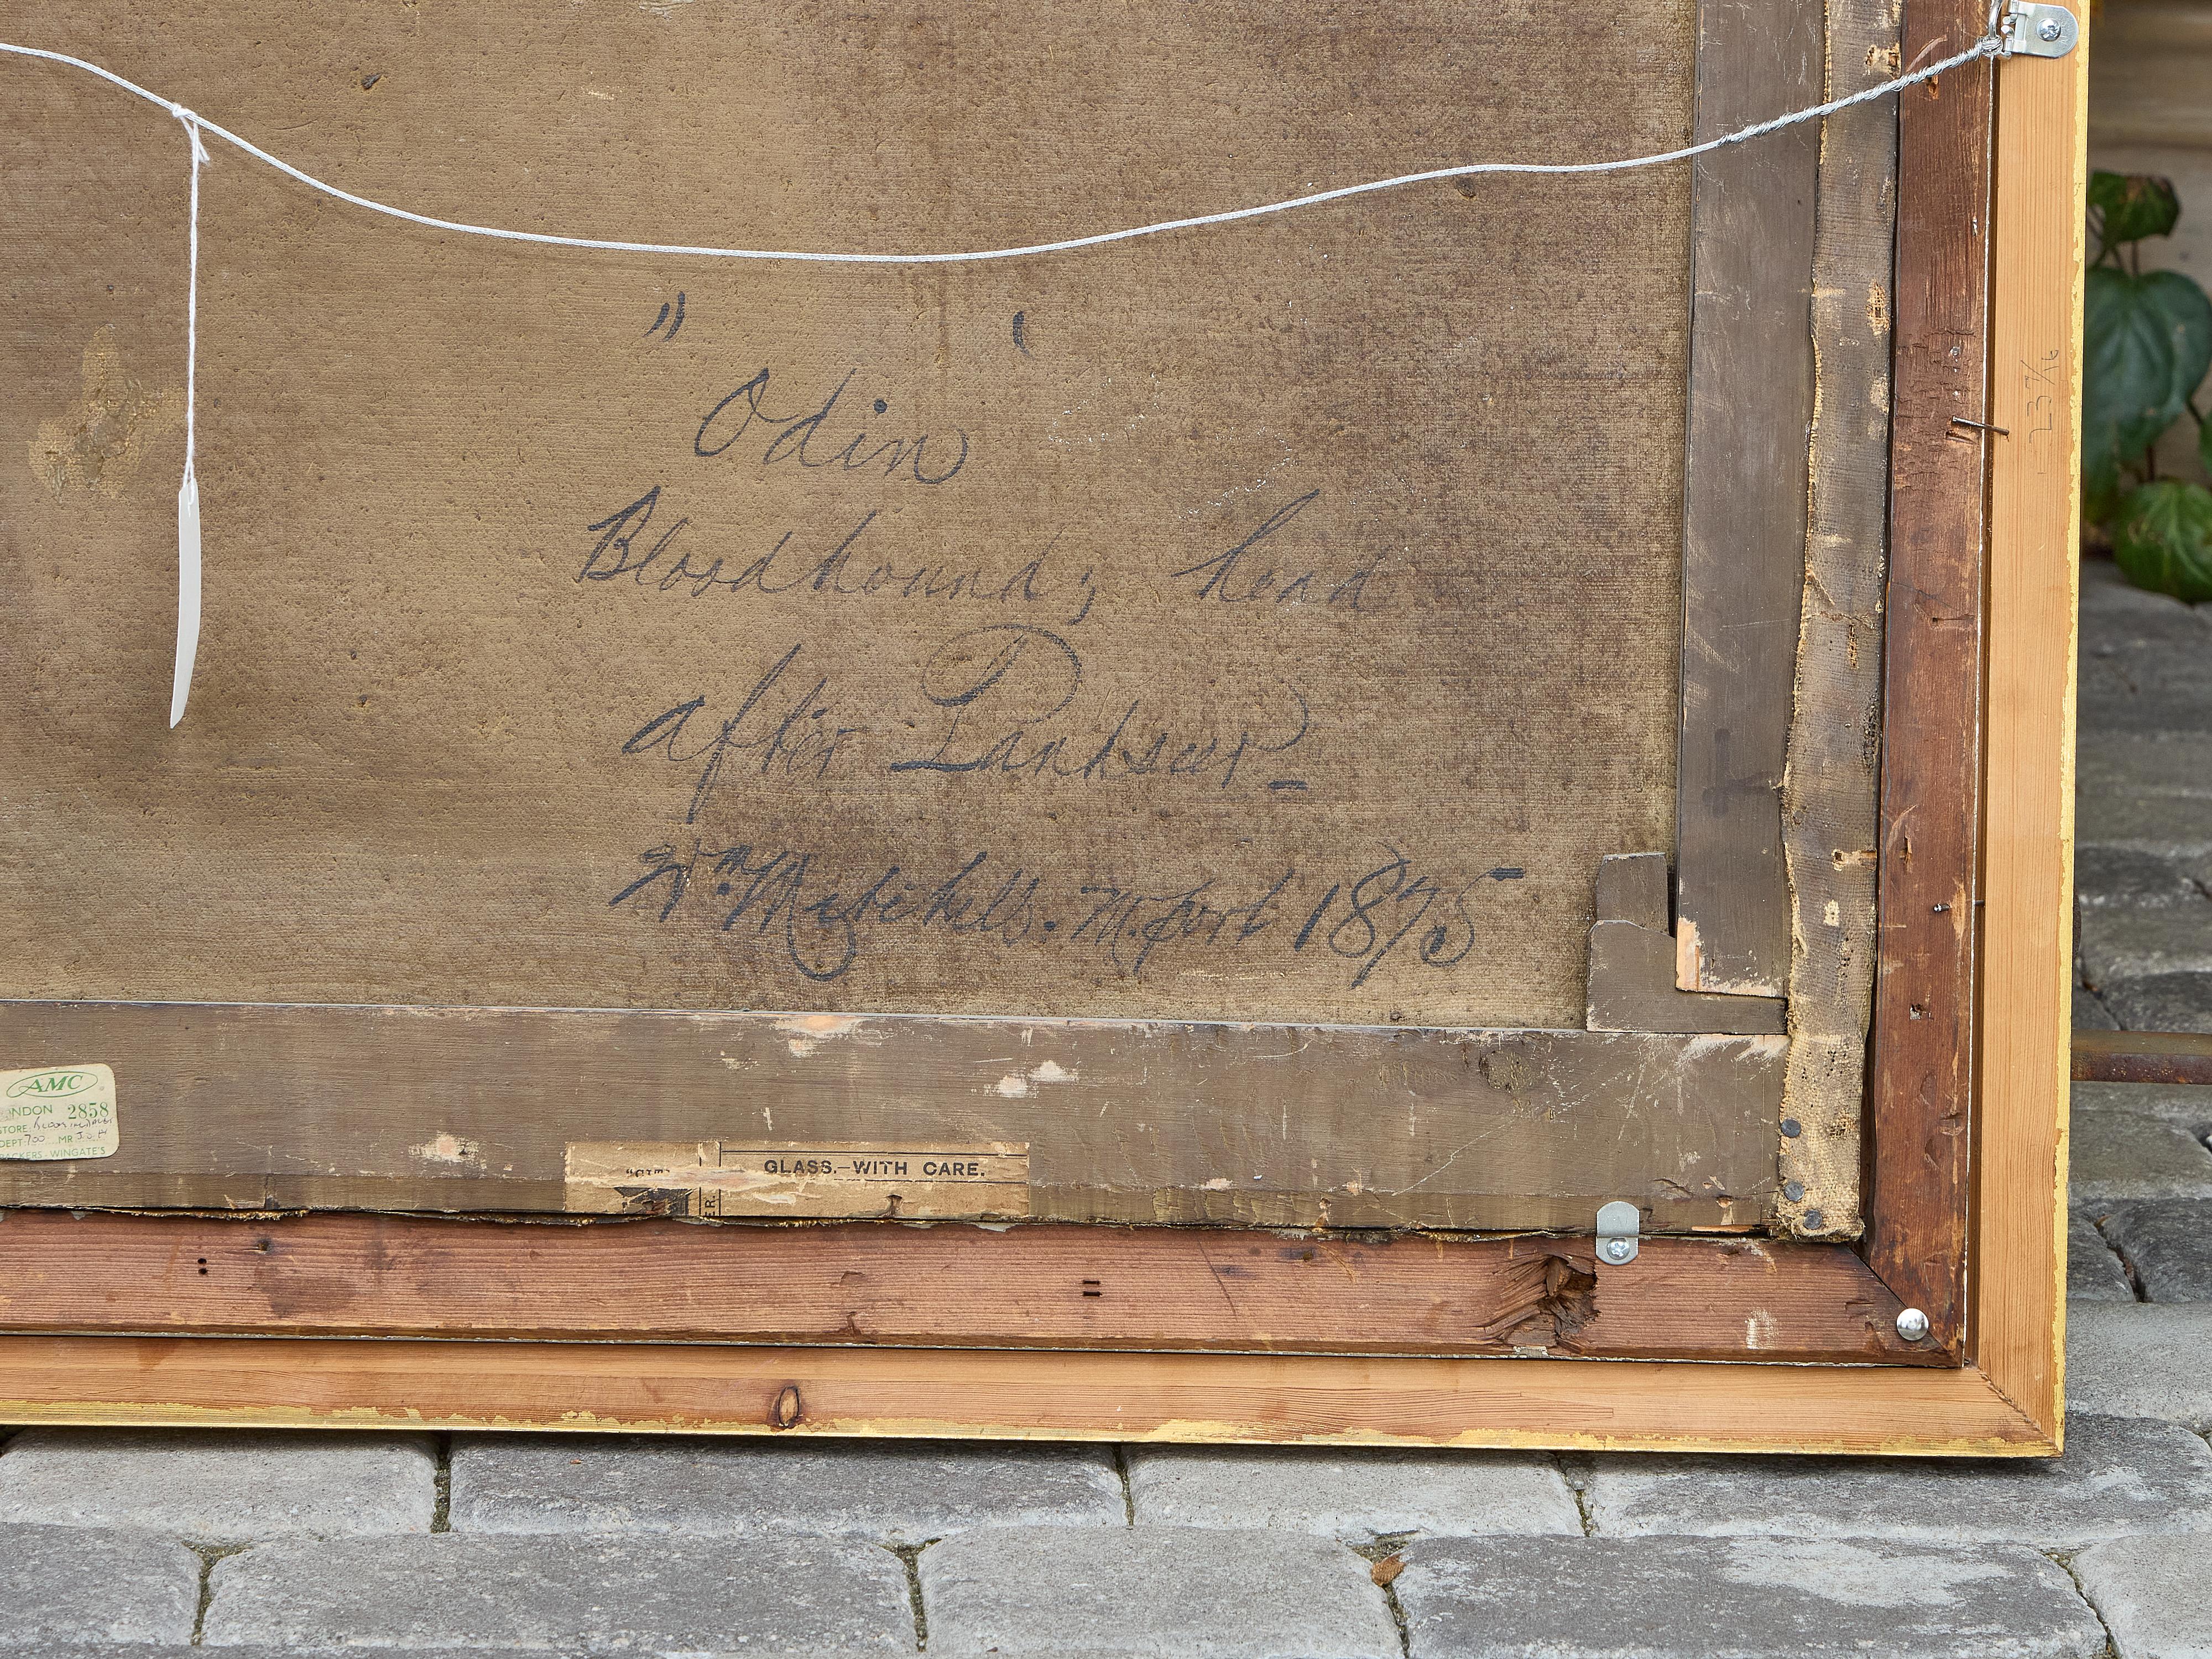 " "
Odin
Bloodhound, head
after Landseer_
Wm. Mitchell. M.port 1875
23 7/16
AMC
ONDON 2858
STORE
DEPT 700 MR
PACKERS - WINGATE'S
GLASS.—WITH CARE.
ER.